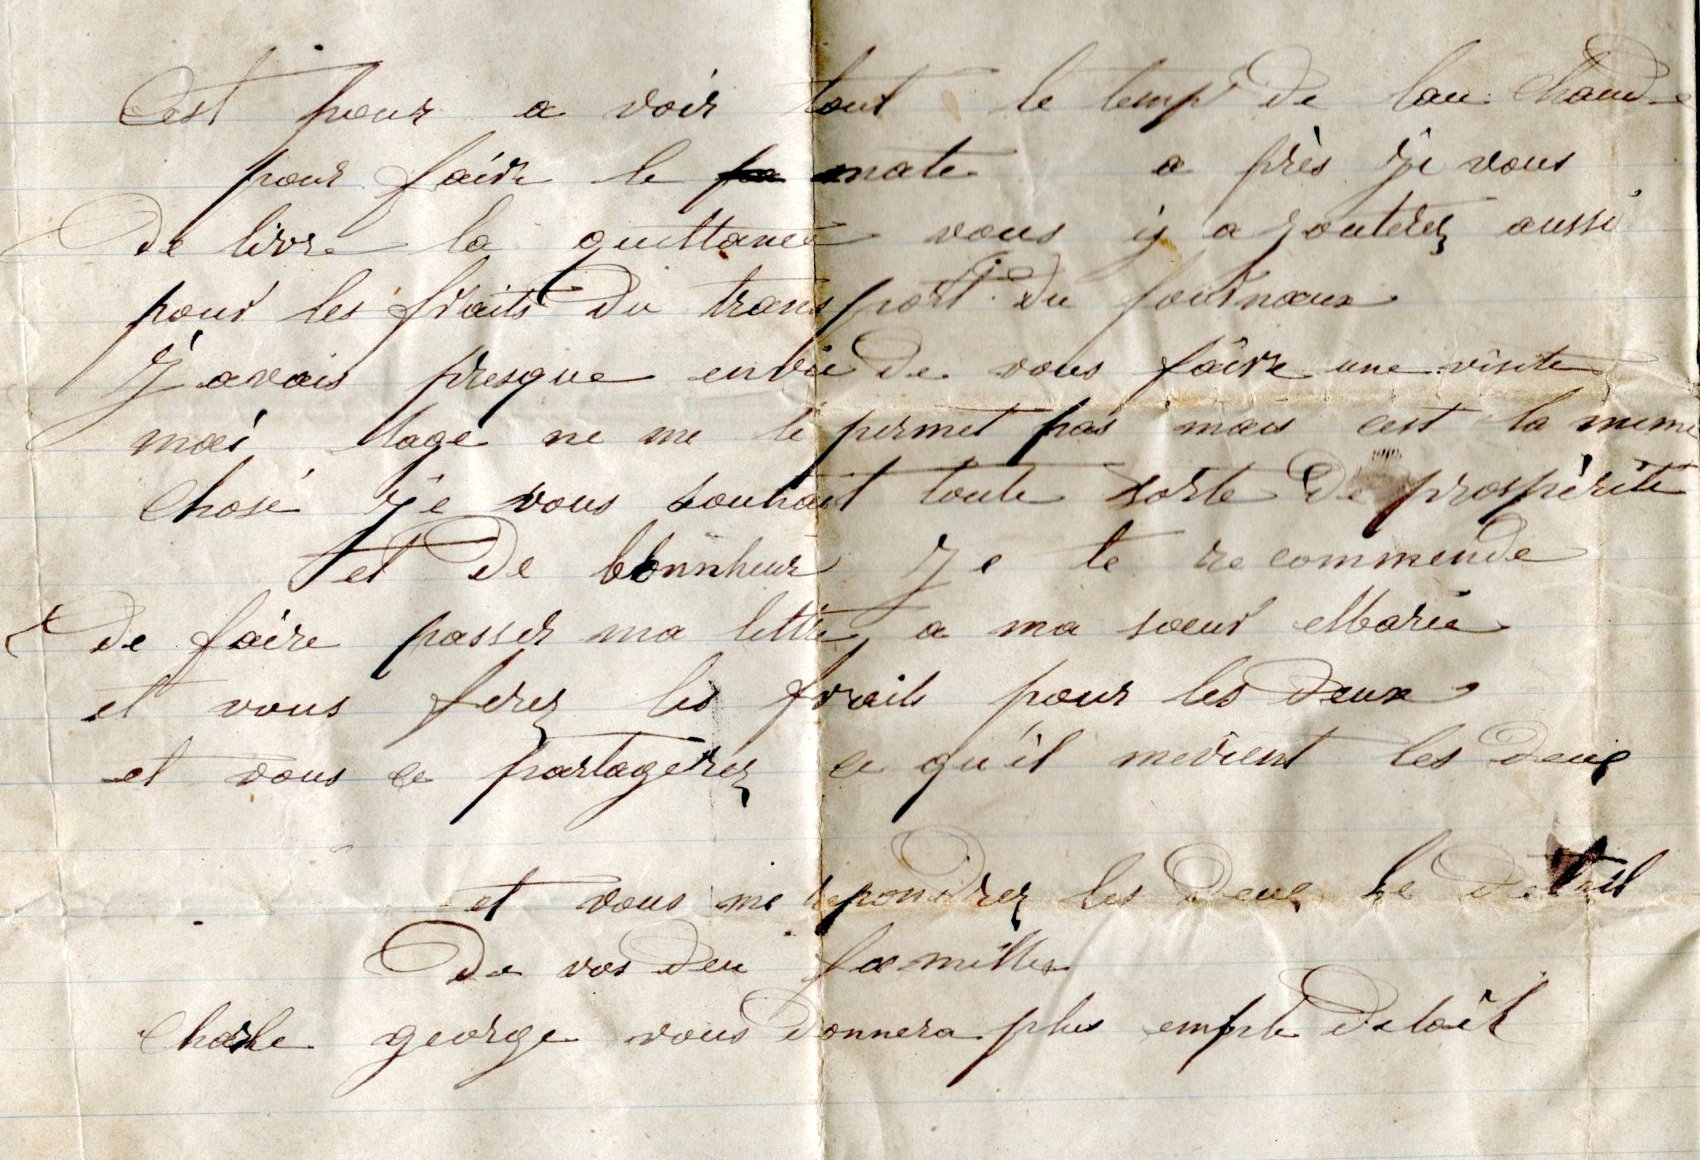 Cest pour a voir tout le temp de lau chaude
pour faire le mate a près je vous
de livre la quittance vous y a jouterez aussi
pour les fraits du transport du fourneaux
J avais presque envie de vous faire une visite
mai lage ne me le permet pas mais cest la meme
chose je vous souhait toute sorte de prospèrité
et de bonnheur Je te re commende
de faire passer ma lettre a ma soeur Marie
et vous ferez les fraits pour les deux
et vous ce partagerez ce qu'il mevient les deux
et vous me reponderez les deux le detail
de vos deu familles
Charle george vous donnera plus emple detail